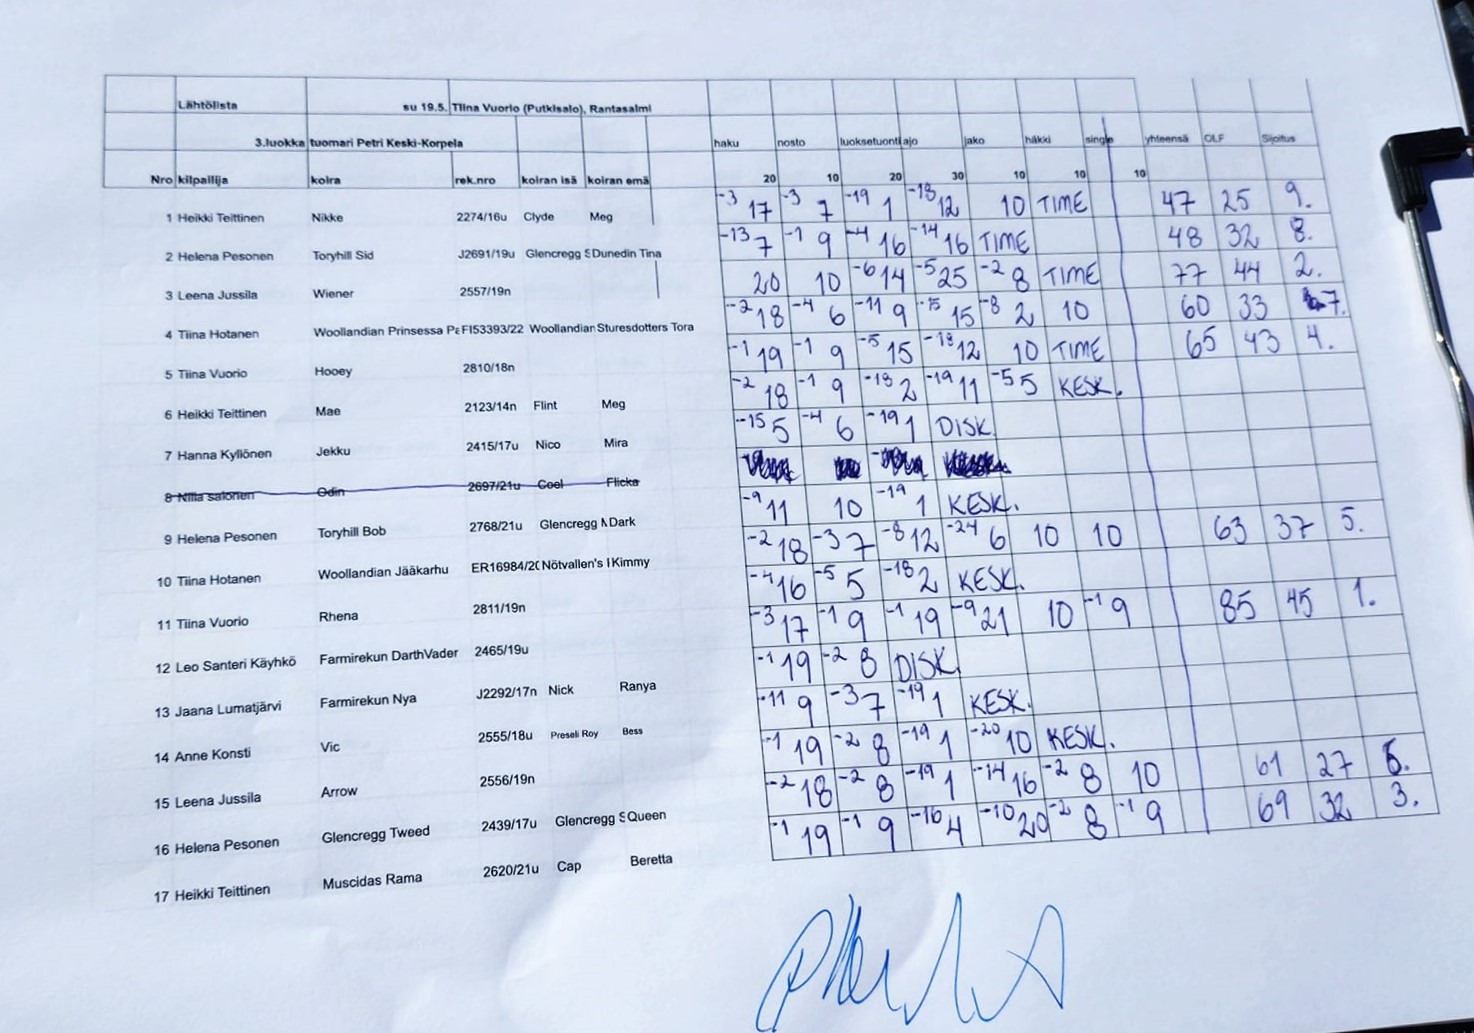 Lähtölista su 19.5. Tiina Vuorio (Putkisalo), Rantasalmi
3.luokka tuomari Petri Keski-Korpela haku nosto luoksetuonti ajo jako häkki single yhteensä OLF Sijoitus
Nro kilpailija koira rek.nro koiran isä koiran emä 20 10 20 30 10 10 10
1 Heikki Teittinen Nikke 2274/16u Clyde Meg -3 17 -3 7 -19 1 -18 12 10 TIME 47 25 9.
2 Helena Pesonen Toryhill Sid J2691/19u Glencregg S Dunedin Tina -13 7 -1 9 -4 16 -14 16 TIME 48 32 8.
3 Leena Jussila Wiener 2557/19n 20 10 -6 14 -5 25 -2 8 TIME 77 44 2.
4 Tiina Hotanen Woollandian Prinsessa Pa FI53393/22 Woollandian Sturesdotters Tora -2 18 -4 6 -11 9 -15 15 -8 2 10 60 33 7.
5 Tiina Vuorio Hooey 2810/18n -1 19 -1 9 -5 15 -18 12 10 TIME 65 43 4.
6 Heikki Teittinen Mae 2123/14n Flint Meg -2 18 -1 9 -18 2 -19 11 -5 5 KESK.
7 Hanna Kyllönen Jekku 2415/17u Nico Mira -15 5 -4 6 -19 1 DISK
8 Niila salonen Odin 2697/21u Coel Flicka
9 Helena Pesonen Toryhill Bob 2768/21u Glencregg M Dark -9 11 10 -19 1 KESK.
10 Tiina Hotanen Woollandian Jääkarhu ER16984/20 Nötvallen's I Kimmy -2 18 -3 7 -8 12 -24 6 10 10 63 37 5.
11 Tiina Vuorio Rhena 2811/19n -4 16 -5 5 -18 2 KESK.
12 Leo Santeri Käyhkö Farmirekun DarthVader 2465/19u -3 17 -1 9 -1 19 -9 21 10 -1 9 85 45 1.
13 Jaana Lumatjärvi Farmirekun Nya J2292/17n Nick Ranya -1 19 -2 8 DISK
14 Anne Konsti Vic 2555/18u Preseli Roy Bess -11 9 -3 7 -19 1 KESK.
15 Leena Jussila Arrow 2556/19n -1 19 -2 8 -19 1 -20 10 KESK.
16 Helena Pesonen Glencregg Tweed 2439/17u Glencregg S Queen -2 18 -2 8 -19 1 -14 16 -2 8 10 61 27 6.
17 Heikki Teittinen Muscidas Rama 2620/21u Cap Beretta -1 19 -1 9 -16 4 -10 20 -2 8 -1 9 69 32 3.